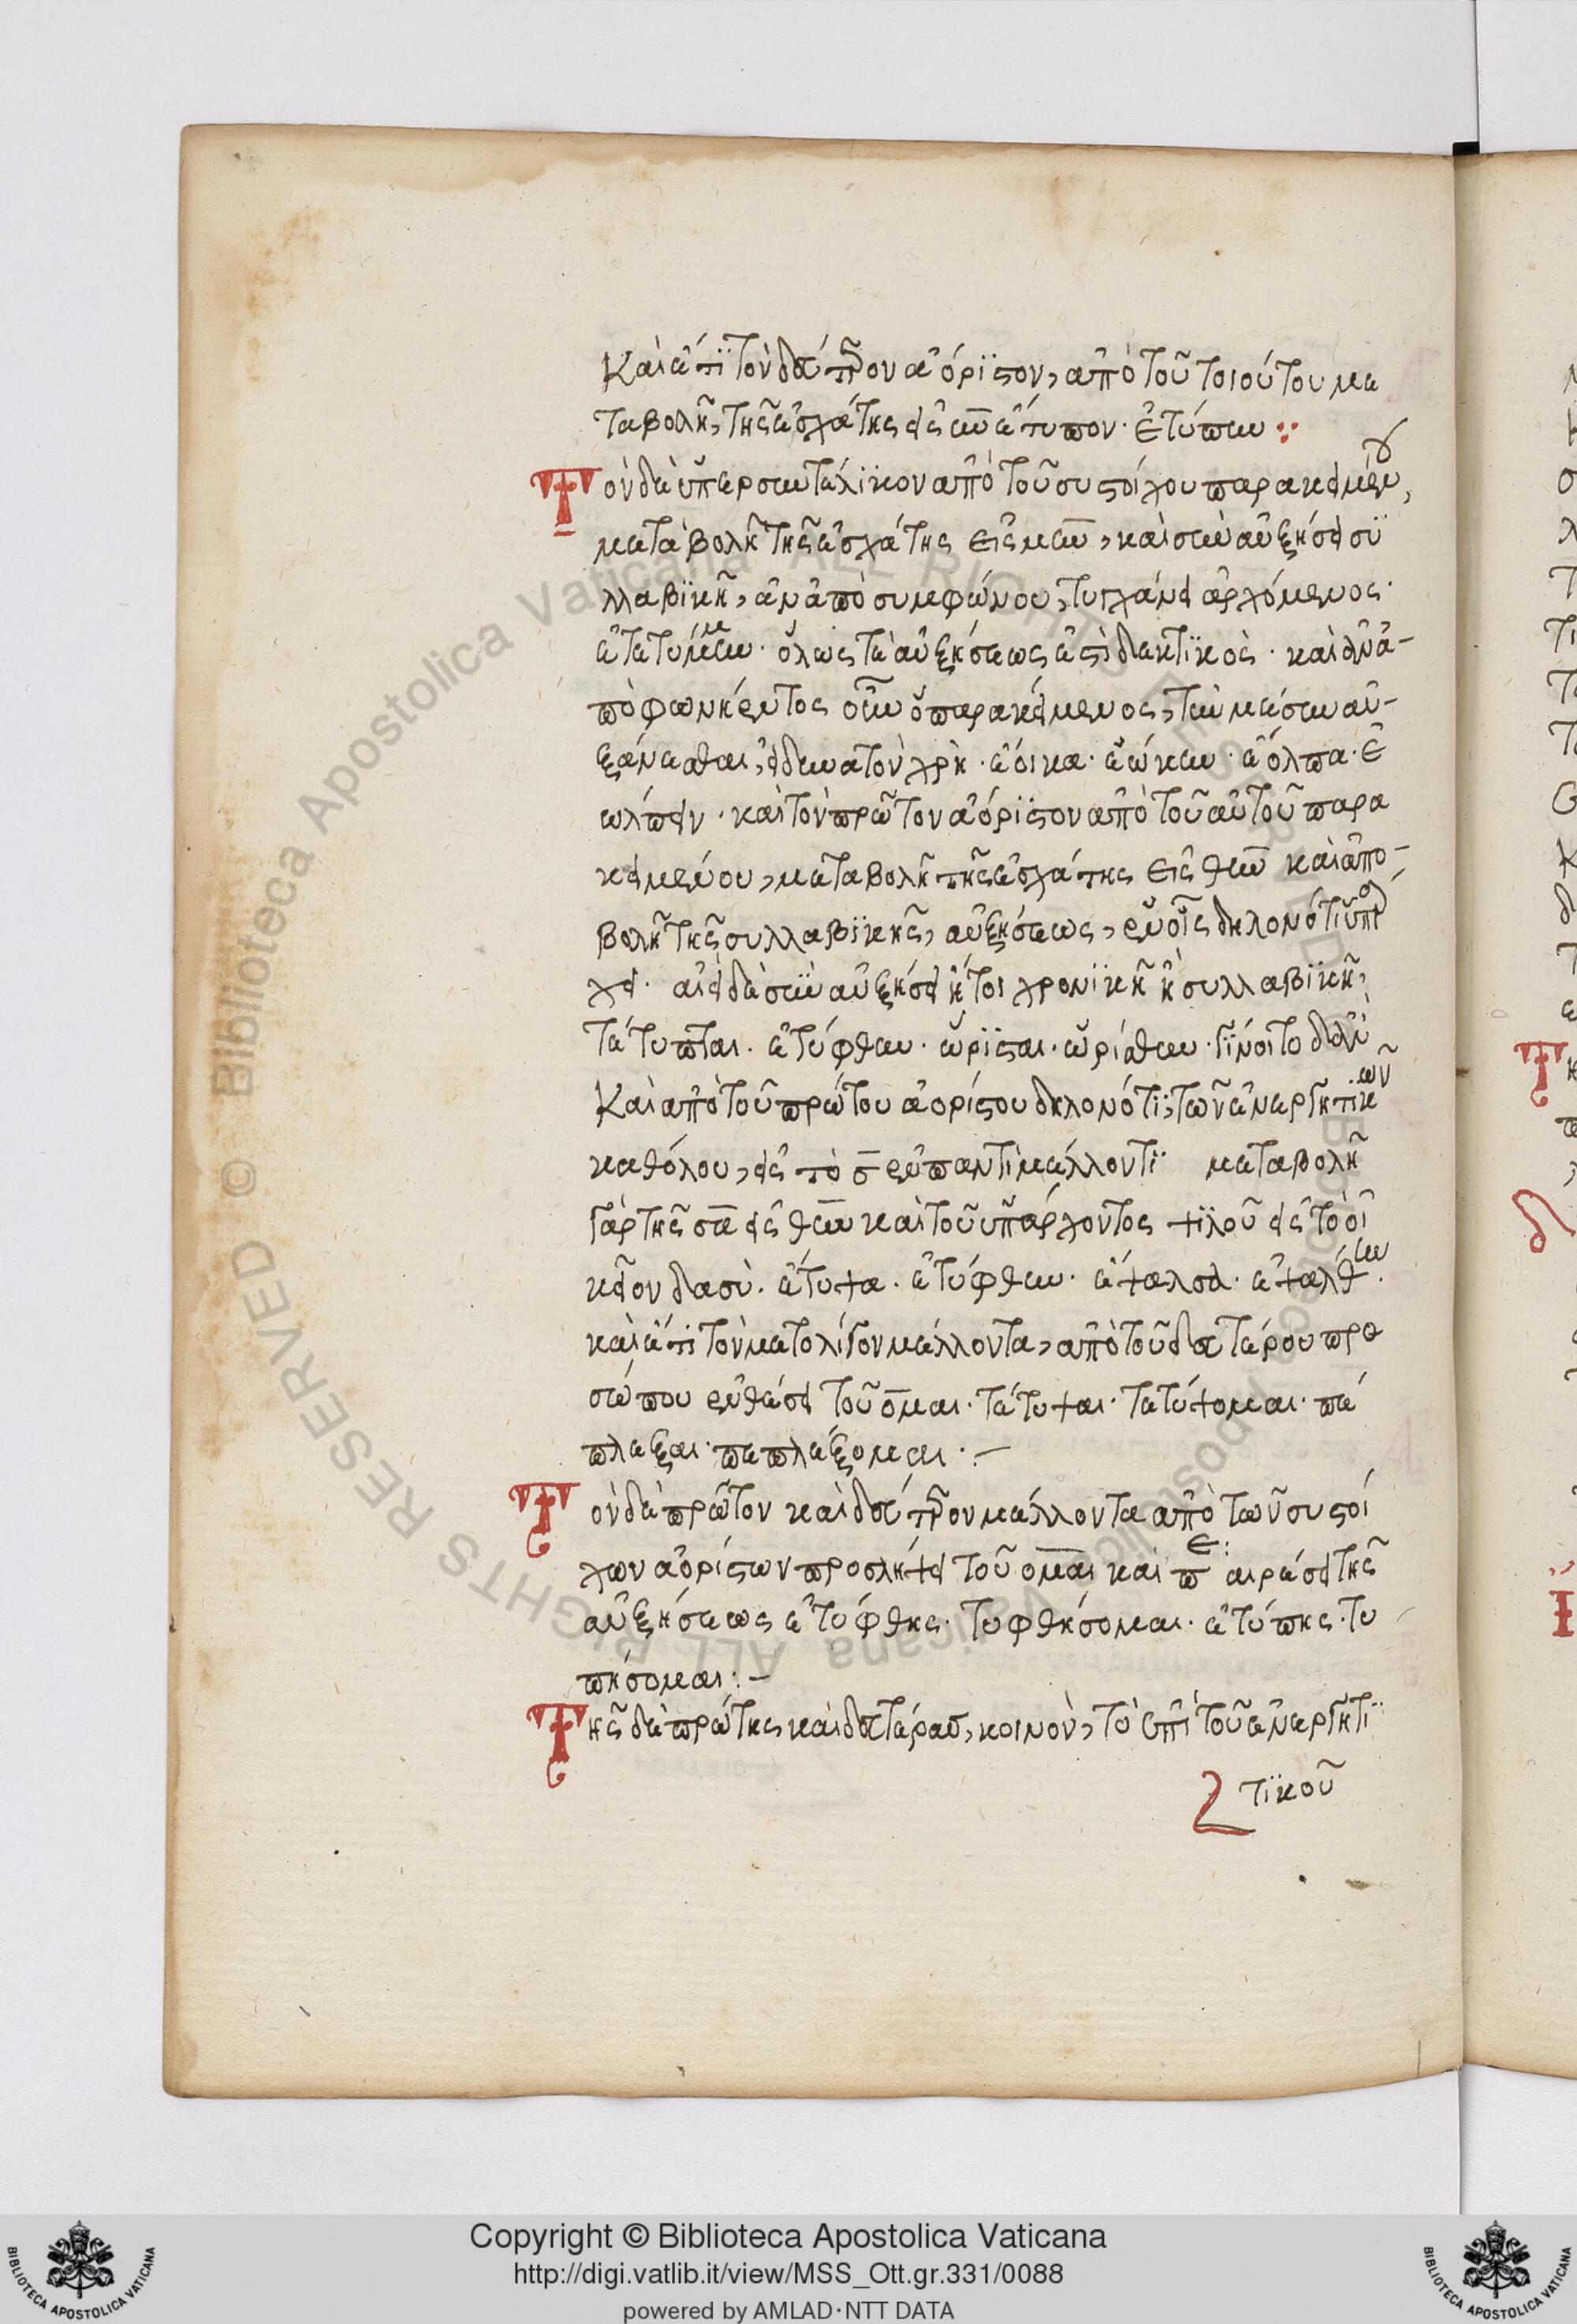 Καὶ ἔτι τὸν δεύτερον ἀόριστον, ἀπὸ τοῦ τοιούτου με
ταβολῇ, τῆς ἐσχάτης εἰς ον ἔτυπον. ἐτύπην
Τὸν δὲ ὑπερσυντέλικον ἀπὸ τοῦ συστοίχου παρακειμένου,
μεταβολῇ τῆς ἐσχάτης εἰς μην, καὶ σὺν αὐξήσει συ
λλαβικῇ, ἂν ἀπὸ συμφώνου, τυγχάνει ἀρχόμενος.
ἐτετύμμην. ὅλως τε αὐξήσεως ἐστὶ δεκτικὸς. καὶ ἀ-
πὸ φωνήεντος οὖν ὁ παρακείμενος, τὴν μέσην αὐ-
ξάνεσθαι, εἰ δυνατὸν χρὴ. ἔοικα. ἐῴκειν. ἔολπα. ἐ
ώλπειν. καὶ τὸν πρῶτον ἀόριστον ἀπὸ τοῦ αὐτοῦ παρα
κειμένου, μεταβολῇ τῆς ἐσχάτης εἰς θην καὶ ἀπο-
βολῇ τῆς συλλαβικῆς, αὐξήσεως, ἐν οἷς δηλονότι ὑπάρ
χει. ἀεὶ δὲ σὺν αὐξήσει ἤτοι χρονικῇ ἢ συλλαβικῇ,
τέτυπται. ἐτύφθην. ὥρισται. ὡρίσθην. γίνοιτο δ' ἂν
Καὶ ἀπὸ τοῦ πρώτου ἀορίστου δηλονότι, τῶν ἐνεργητικῶν
καθόλου, εἰς τὸ σ ἐν παντὶ μέλλοντι μεταβολῇ
γὰρ τῆς σα εἰς θην καὶ τοῦ ὑπάρχοντος ψιλοῦ εἰς τὸ οἰ
κεῖον δασὺ. ἔτυψα. ἐτύφθην. ἔψαλσα. ἐψάλθην.
καὶ ἔτι τὸν μετολίγον μέλλοντα, ἀπὸ τοῦ δευτέρου προ
σώπου ἐνθέσει τοῦ ομαι. τέτυψαι. τετύψομαι. πέ
πλεξαι. πεπλέξομαι. :—
Τὸν δὲ πρῶτον καὶ δεύτερον μέλλοντα ἀπὸ τῶν συστοί
χων ἀορίστων προσλήψει τοῦ ομαι καὶ αἱρέσει τῆς
αὐξήσεως ἐτύφθης. τυφθήσομαι. ἐτύπης. τυ
πήσομαι: —
Τῆς δὲ πρώτης καὶ δευτέρας, κοινὸν, τὸ ἐπὶ τοῦ ἐνεργητι
τικοῦ
Copyright © Biblioteca Apostolica Vaticana
http://digi.vatlib.it/view/MSS_Ott.gr.331/0088
powered by AMLAD·NTT DATA